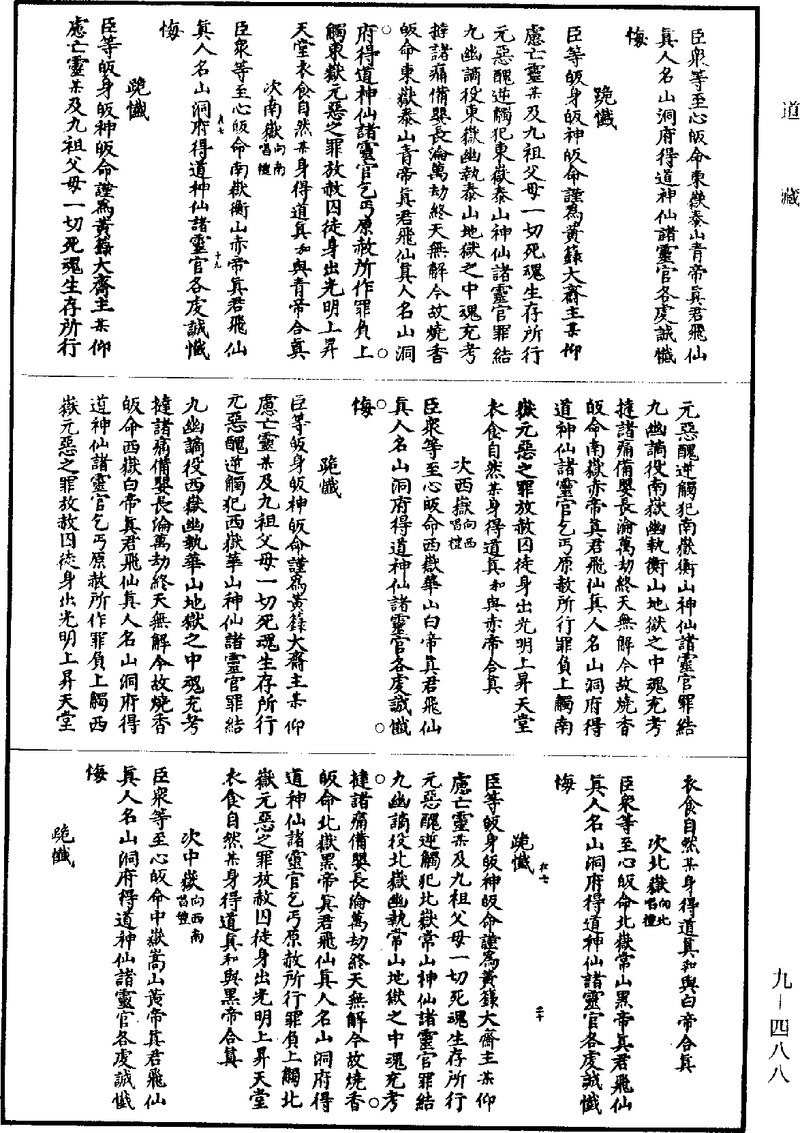 道藏
臣衆等至心皈命東嶽泰山青帝真君飛仙
真人名山洞府得道神仙諸靈官各虔誠懺
悔
跪懺
臣等皈身皈神皈命謹爲黃籙大齋主某仰
慮亡靈某及九祖父母一切死魂生存所行
元惡醜逆觸犯東嶽泰山神仙諸靈官罪結
九幽謫役東嶽幽執泰山地獄之中魂充考
撻諸痛備嬰長淪萬劫終天無解今故燒香
皈命東嶽泰山青帝真君飛仙真人名山洞
府得道神仙諸靈官乞丐原赦所作罪負上
觸東嶽元惡之罪放赦囚徒身出光明上昇
天堂衣食自然某身得道真和與青帝合真
次南嶽向南唱禮
臣衆等至心皈命南嶽衡山赤帝真君飛仙
真人名山洞府得道神仙諸靈官各虔誠懺
悔
十九
跪懺
臣等皈身皈神皈命謹爲黃籙大齋主某仰
慮亡靈某及九祖父母一切死魂生存所行
元惡醜逆觸犯南嶽衡山神仙諸靈官罪結
九幽謫役南嶽幽執衡山地獄之中魂充考
撻諸痛備嬰長淪萬劫終天無解今故燒香
皈命南嶽赤帝真君飛仙真人名山洞府得
道神仙諸靈官乞丐原赦所行罪負上觸南
嶽元惡之罪放赦囚徒身出光明上昇天堂
衣食自然某身得道真和與赤帝合真
次西嶽向西唱禮
臣衆等至心皈命西嶽華山白帝真君飛仙
真人名山洞府得道神仙諸靈官各虔誠懺
悔
跪懺
臣等皈身皈神皈命謹爲黃籙大齋主某仰
慮亡靈某及九祖父母一切死魂生存所行
元惡醜逆觸犯西嶽華山神仙諸靈官罪結
九幽謫役西嶽幽執華山地獄之中魂充考
撻諸痛備嬰長淪萬劫終天無解今故燒香
皈命西嶽白帝真君飛仙真人名山洞府得
道神仙諸靈官乞丐原赦所作罪負上觸西
嶽元惡之罪放赦囚徒身出光明上昇天堂
衣食自然某身得道真和與白帝合真
次北嶽向北唱禮
臣衆等至心皈命北嶽常山黑帝真君飛仙
真人名山洞府得道神仙諸靈官各虔誠懺
悔
二十
跪懺
臣等皈身皈神皈命謹爲黃籙大齋主某仰
慮亡靈某及九祖父母一切死魂生存所行
元惡醜逆觸犯北嶽常山神仙諸靈官罪結
九幽謫役北嶽幽執常山地獄之中魂充考
撻諸痛備嬰長淪萬劫終天無解今故燒香
皈命北嶽黑帝真君飛仙真人名山洞府得
道神仙諸靈官乞丐原赦所行罪負上觸北
嶽元惡之罪放赦囚徒身出光明上昇天堂
衣食自然某身得道真和與黑帝合真
次中嶽向西南唱禮
臣衆等至心皈命中嶽嵩山黃帝真君飛仙
真人名山洞府得道神仙諸靈官各虔誠懺
悔
跪懺
九—四八八